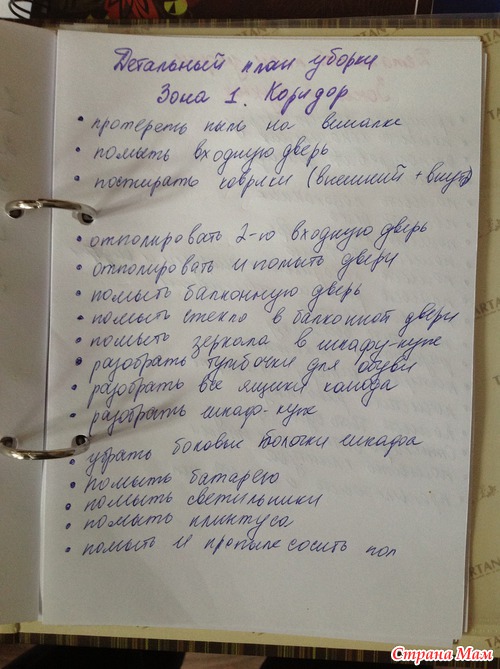 Детальный план уборки
Зона 1. Коридор
• протереть пыль на вешалке
• помыть входную дверь
• постирать коврики (внешний + внутр)
• отполировать 2-ю входную дверь
• отполировать и помыть двери
• помыть балконную дверь
• помыть стекло в балконной двери
• помыть зеркала в шкафу-купе
• разобрать тумбочки для обуви
• разобрать все ящики комода
• разобрать шкаф-купе
• убрать боковые полочки шкафа
• помыть батарею
• помыть светильники
• помыть плинтуса
• помыть и пропылесосить пол
Страна Мам